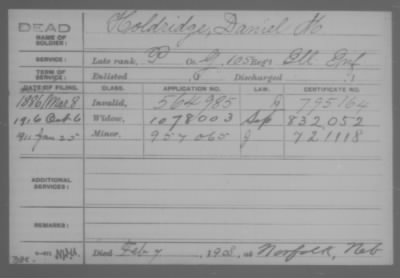 DEAD
NAME OF SOLDIER: Holdridge, Daniel H.
SERVICE: Late rank, P Co. G, 105 Reg't Ill Inf
TERM OF SERVICE: Enlisted , 1 Discharged , 1
DATE OF FILING. CLASS. APPLICATION NO. LAW. CERTIFICATE NO.
1886 Mar 8 Invalid, 564985 G 795164
1916 Oct 6 Widow, 1078003 Sep 832052
911 Jan 25 Minor. 957065 J 721118
ADDITIONAL SERVICES:
REMARKS:
Died Feb 7, 1908, at Norfolk, Neb